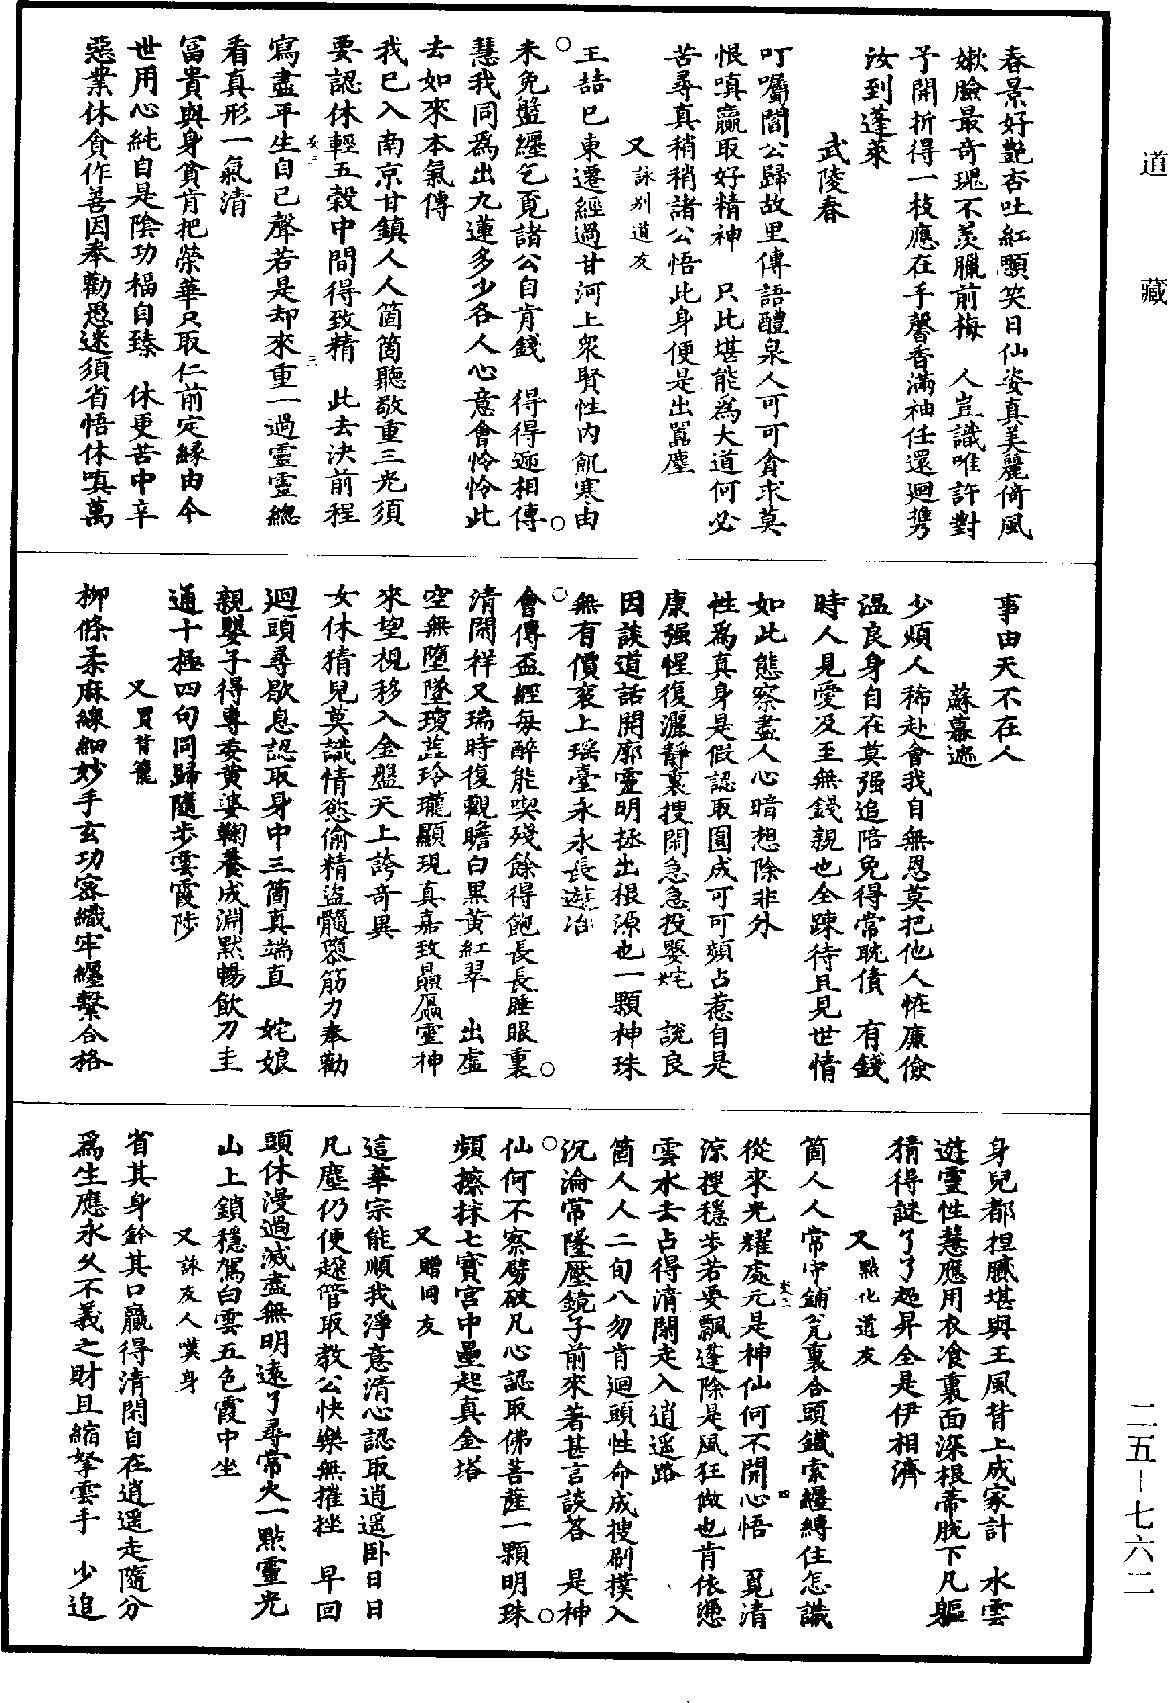 道藏
春景好艷杏吐紅顋笑日仙姿真美麗倚風
嫰臉最奇瑰不羨臘前梅　人豈識唯許對
予開折得一枝應在手馨香滿袖任還迴㩗
汝到蓬萊
武陵春
叮囑閻公歸故里傳語醴泉人可可貪求莫
恨嗔贏取好精神　只此堪能爲大道何必
苦尋真稍稍諸公悟此身便是出囂塵
又詠别道友
王喆巳東遷經過甘河上衆賢性內飢寒由
未免盤纏乞覓諸公自肯錢　得得遞相傳
慧我同爲出九蓮多少各人心意會怜怜此
去如來本氣傳
我已入南京甘鎮人人箇箇聽敬重三光須
要認休輕五穀中間得致精　此去決前程
寫盡平生自已聲若是却來重一過靈靈總
看真形一氣清
冨貴與身貧肯把榮華只取仁前定緣由今
世用心純自是陰功福自臻　休更苦中辛
惡業休貪作善因奉勸愚迷須省悟休嗔萬
事由天不在人
蘇幕遮
少煩人稀赴會我自無恩莫把他人恠廉儉
温良身自在莫强追陪免得常耽債　有錢
時人見愛及至無錢親也全踈待且見世情
如此態察盡人心暗想除非外
性爲真身是假認取圓成可可頻占惹自是
康强惺復灑靜裏搜閑急急投嬰姹　說良
因談道話開廓靈明拯出根源也一顆神珠
無有價衮上瑶臺永永長遊冶
會傳盃經每醉能喫殘餘得飽長長睡眼裏
清閑祥又瑞時復觀瞻白黑黃紅翠　出虛
空無墮墜瓊蘂玲瓏顯現真嘉致贔屭靈神
來望視移入金盤天上誇奇異
女休猜兒莫識情慾偷精盜髓隳筋力奉勸
迴頭尋歇息認取身中三箇真端直　姹娘
親嬰子得專委黃婆鞠養成淵默暢飲刀圭
通十極四句同歸隨步雲霞陟
又買背籠
柳條柔麻線細妙手玄功密織牢纏繫合格
身兒都担膩堪與王風背上成家計　水雲
遊靈性慧應用衣飡裏面深根蒂脫下凡軀
猜得謎了了超昇全是伊相濟
又點化道友
箇人人常守鋪瓮裏合頭鐵索纏縛住怎識
從來光耀處元是神仙何不開心悟　覓清
涼搜穩步若要飄蓬除是風狂做也肯依懑
雲水去占得清閑走入逍遥路
箇人人二旬八勿肯迴頭性命成搜刷撲入
沉淪常墜壓鏡子前來著甚言談荅　是神
仙何不察劈破凡心認取佛菩薩一顆明珠
頻擦抹七寶宮中壘起真金塔
又贈同友
這華宗能順我淨意清心認取逍遥卧日日
凡塵仍便趍管取教公快樂無摧挫　早回
頭休漫過減盡無明遠了尋常火一點靈光
山上鎖穩駕白雲五色霞中坐
又詠友人嘆身
省其身鈐其口贏得清閑自在逍遥走隨分
爲生應永久不義之財且縮拏雲手　少追
二五－七六二